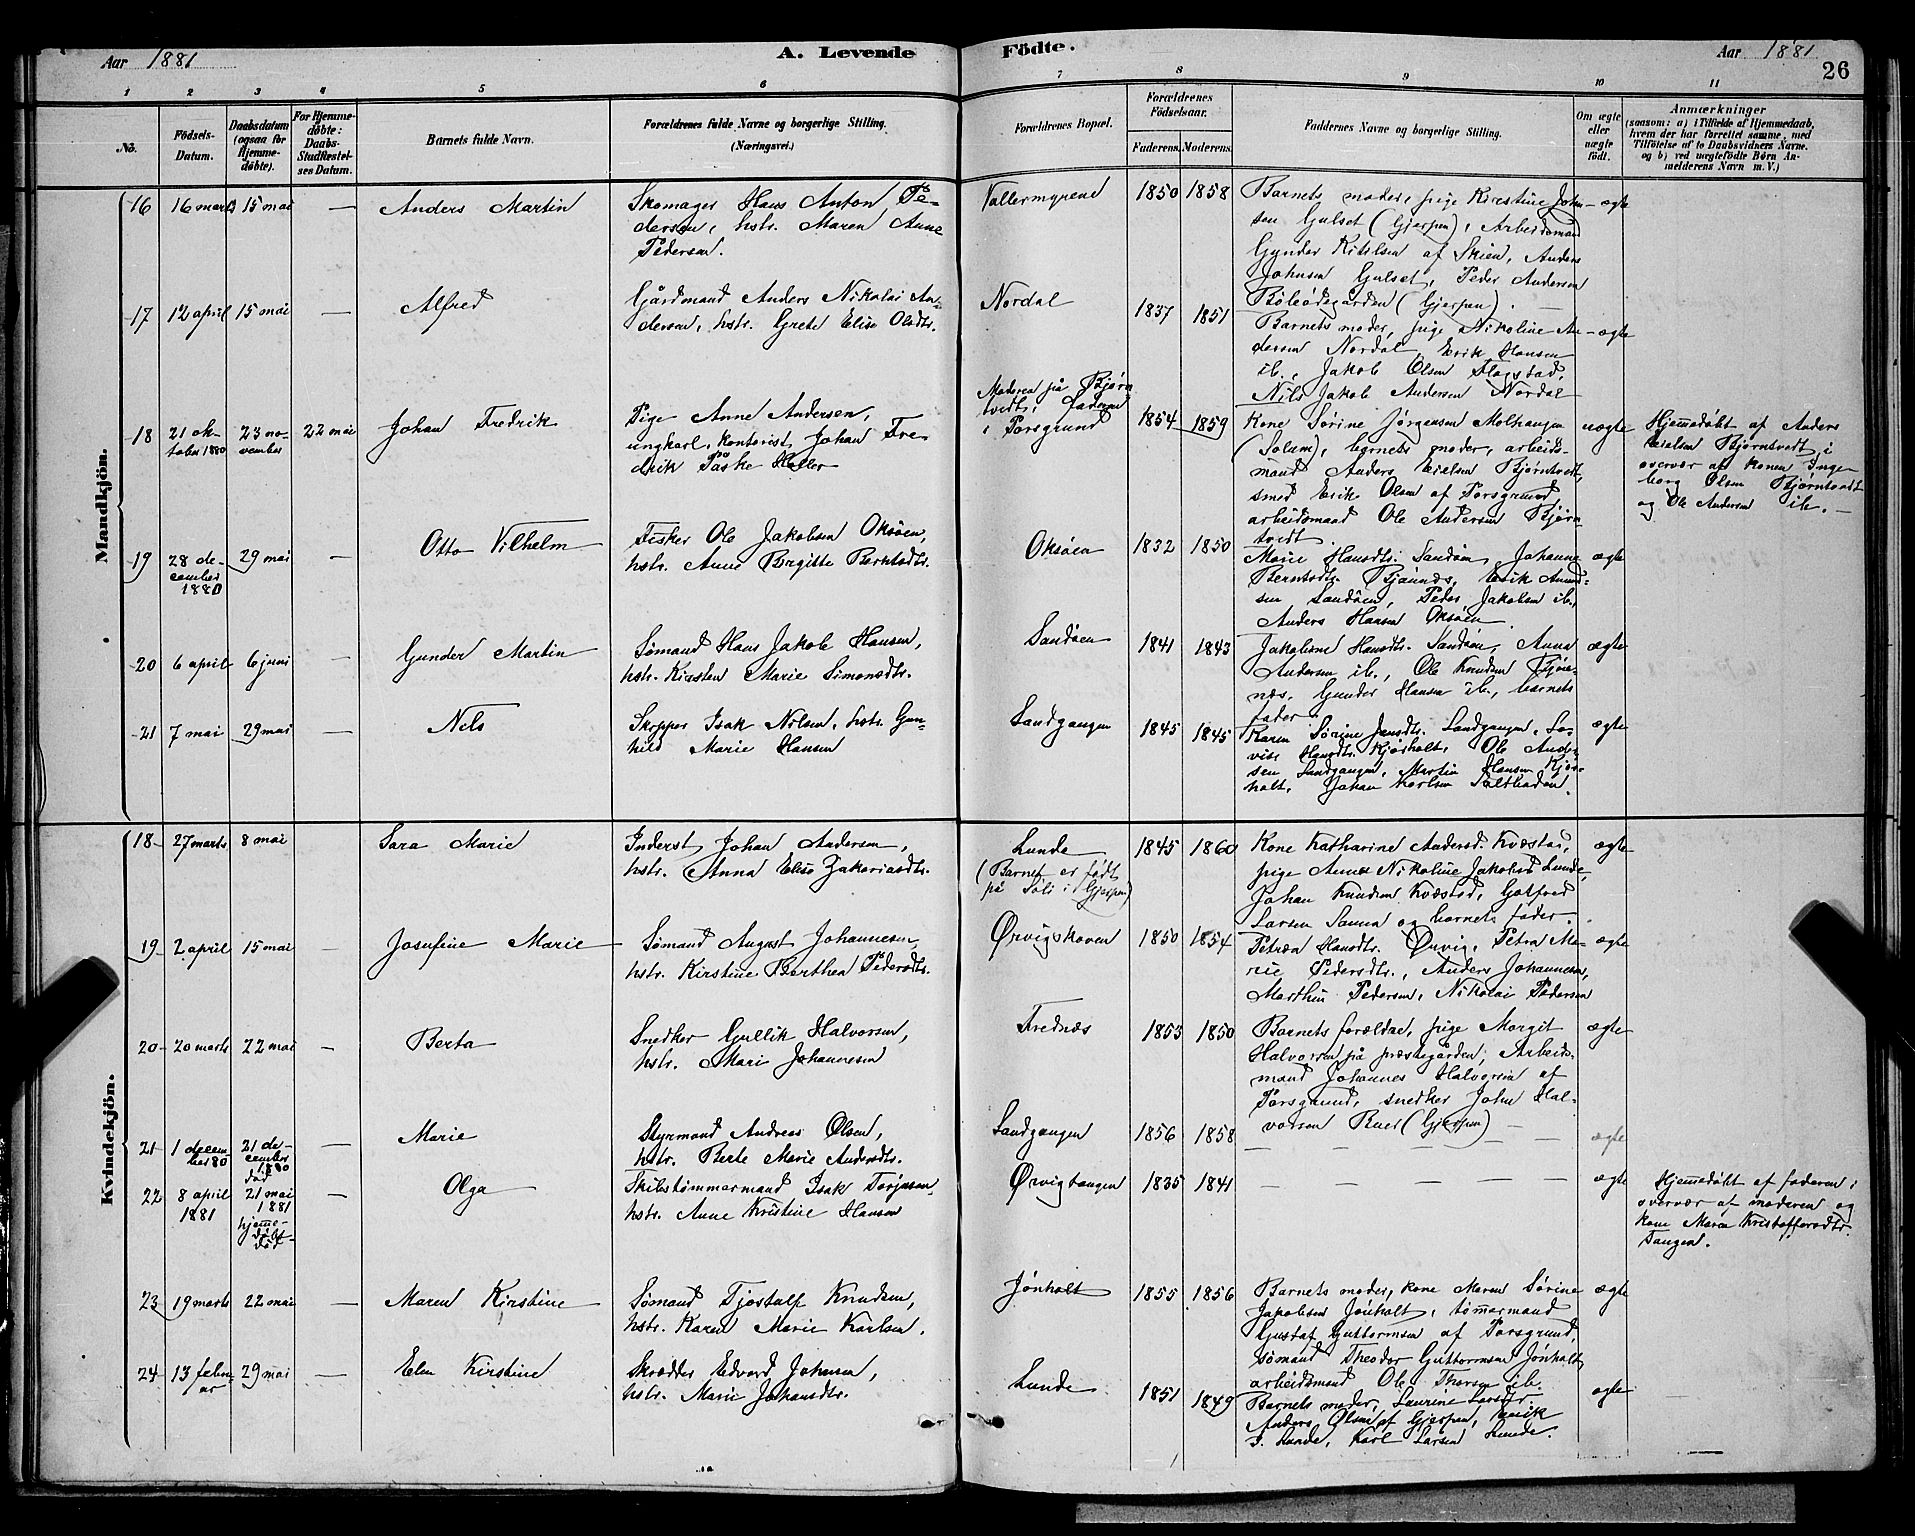 Aar 1881
A. Levende
Födte.
Aar 1881
26
1 2 3 4 5 6 7 8 9 10 11
No.
Födsels-
Datum.
Daabsdatum
(ogsaa for
Hjemme-
døbte).
For Hjemme-
døbte:
Daabs-
Stadfæstel-
ses Datum.
Barnets fulde Navn.
Forældrenes fulde Navne og borgerlige Stilling.
(Næringsvei.)
Forældrenes Bopæl.
Forældrenes
Födselsaar.
Faderens. Moderens.
Faddernes Navne og borgerlige Stilling.
Om ægte
eller
uægte
født.
Anmærkninger
(saasom: a) i Tilfælde af Hjemmedaab,
hvem der har forrettet samme, med
Tilføielse af to Daabsvidners Navne.
og b) ved uægtefødte Børn An-
melderens Navn m. V.)
Mandkjön.
16 16 marts 15 mai — Anders Martin
Skomager Hans Anton Pe-
dersen, hstr. Maren Anne
Pedersen.
Vallermyrene 1850 1858
Barnets moder, pige Kirstine John-
sen Gulset (Gjerpen), Arbeidsmand
Gunder Kittilsen af Skien, Anders
Johnsen Gulset, Peder Andersen
Böleödegården (Gjerpen).
ægte
17 12 april 15 mai — Alfred
Gårdmand Anders Nikolai An-
dersen, hstr. Grete Elise Olsdtr.
Nordal 1837 1851
Barnets moder, pige Nikoline An-
dersen Nordal, Erik Hansen
ib., Jakob Olsen Flogstad,
Nils Jakob Andersen Nordal
ægte
18 21 ok-
tober 1880
23 no-
vember
22 mai
Johan Fredrik
Pige Anne Andersen,
ungkarl, kontorist Johan Fre-
drik Påske Holler
Moderen på Bjørn
tvedt, faderen
i Porsgrund
1854 1859
Kone Sörine Jørgensen Molhaugen
(Solum), barnets moder, arbeids-
mand Anders Eielsen Bjørntvedt,
smed Erik Olsen af Porsgrund,
arbeidsmand Ole Andersen Bjørn
tvedt
uægte
Hjemmedøbt af Anders
Eielsen Bjørntvedt i
overvær af konen Inge
borg Olsen Bjørntvedt
og Ole Andersen ib. —
19 28 de-
cember
1880
29 mai — Otto Vilhelm
Fisker Ole Jakobsen Oksöen,
hstr. Anne Birgitte Berntsdtr.
Oksöen 1832 1850
Marie Hansdtr. Sandöen, Johanne
Berntsdtr. Bjönnes, Erik Amund-
sen Sandöen, Peder Jakobsen ib.,
Anders Hansen Oksöen
ægte
20 6 april 6 juni — Gunder Martin
Sömand Hans Jakob Hansen,
hstr. Kirsten Marie Simonsdtr.
Sandöen 1841 1843
Jakobine Hansdtr. Sandöen, Anne
Andersen ib., Ole Knudsen Bjön-
næs, Gunder Hansen ib., barnets
fader
ægte
21 7 mai 29 mai — Nils
Skipper Isak Nilsen, hstr. Gun-
hild Marie Hansen
Sandgangen 1845 1845
Karen Sörine Jensdtr. Sandgangen, Lo-
vise Hansdtr. Kjørholt, Ole Ander-
sen Sandgangen, Martin Hansen Kjør-
holt, Johan Karlsen Saltboden.
ægte
Kvindekjön.
18 27 marts 8 mai Sara Marie
Inderst Johan Andersen,
hstr. Anna Elise Zakariasdtr.
Lunde
(Barnet er født
på Böli i Gjerpen)
1845 1860
Kone Katharine Andersd. Kvæstad,
pige Anne Nikoline Jakobsd. Lunde,
Johan Knudsen Kvæstad, Gotfred
Larsen Sanna og barnets fader.
ægte
19 2 april 15 mai — Josefine Marie
Sömand August Johannesen,
hstr. Kirstine Berthea Pedersdtr.
Ørvigskoven 1850 1854
Petrea Hansdtr. Ørvig, Petra Ma-
rie Pedersdtr., Anders Johannesen,
Marthin Pedersen, Nikolai Pedersen
ægte
20 20 marts 22 mai — Berta
Snedker Gullik Halvorsen,
hstr. Mari Johannesen
Frednæs 1853 1850
Barnets forældre, pige Margit
Halvorsen på præstegården, Arbeids-
mand Johannes Halvorsen af
Porsgrund, snedker John Hal-
vorsen Buer (Gjerpen)
ægte
21 1 decem-
ber 80
21 de-
cember
1880
død
— Marie
Styrmand Andreas Olsen,
hstr. Berte Marie Andersdtr.
Sandgangen 1856 1858
— — — — —
ægte
22 8 april
1881
21 mai
1881
hjemme-
døbt
død
— Olga
Skibstømmermand Isak Torjusen,
hstr. Anne Kristine Hansen
Ørvigtangen 1835 1841
— — — — —
ægte
Hjemmedøbt af faderen i
overvær af moderen og
kone Maren Kristoffersdtr.
Tangen.
23 19 marts 22 mai — Maren Kirstine
Sömand Tjostulf Knudsen,
hstr. Karen Marie Karlsen.
Jönholt 1855 1856
Barnets moder, kone Maren Sörine
Jakobsen Jönholt, tømmermand
Gustaf Guttormsen af Porsgrund,
sömand Theodor Guttormsen Jönholt,
arbeidsmand Ole Thorsen ib.
ægte
24 13 febru-
ar
29 mai — Elen Kirstine
Skrædder Edvard Johansen,
hstr. Marie Johansdtr.
Lunde 1851 1849
Barnets moder, Laurine Larsdtr.
Anders Olsen af Gjerpen, Erik
Lunde, Karl Larsen Lunde.
ægte